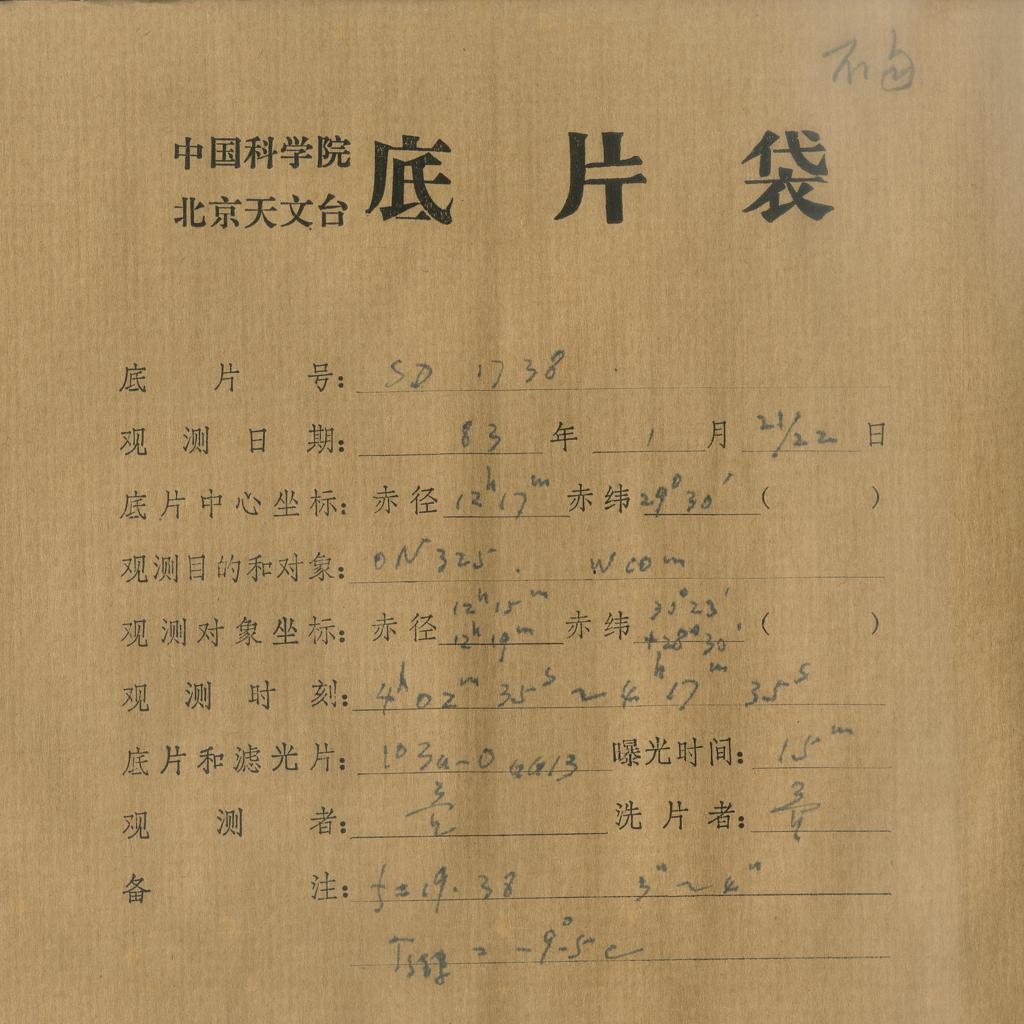 中国科学院
北京天文台
底片袋
底片号: SD 1738
观测日期: 83 年 1 月 21/22 日
底片中心坐标: 赤径 12h17m 赤纬 29°30′ ( )
观测目的和对象: ON 325. W Com
12h15m 30°23′
观测对象坐标: 赤径 12h19m 赤纬 +28°30′ ( )
观测时刻: 4h02m35s ~ 4h17m35s
底片和滤光片: 103a-O GG13 曝光时间: 15m
观测者: 洗片者:
备注: f=19.38 3″~4″
= -9°.5 C